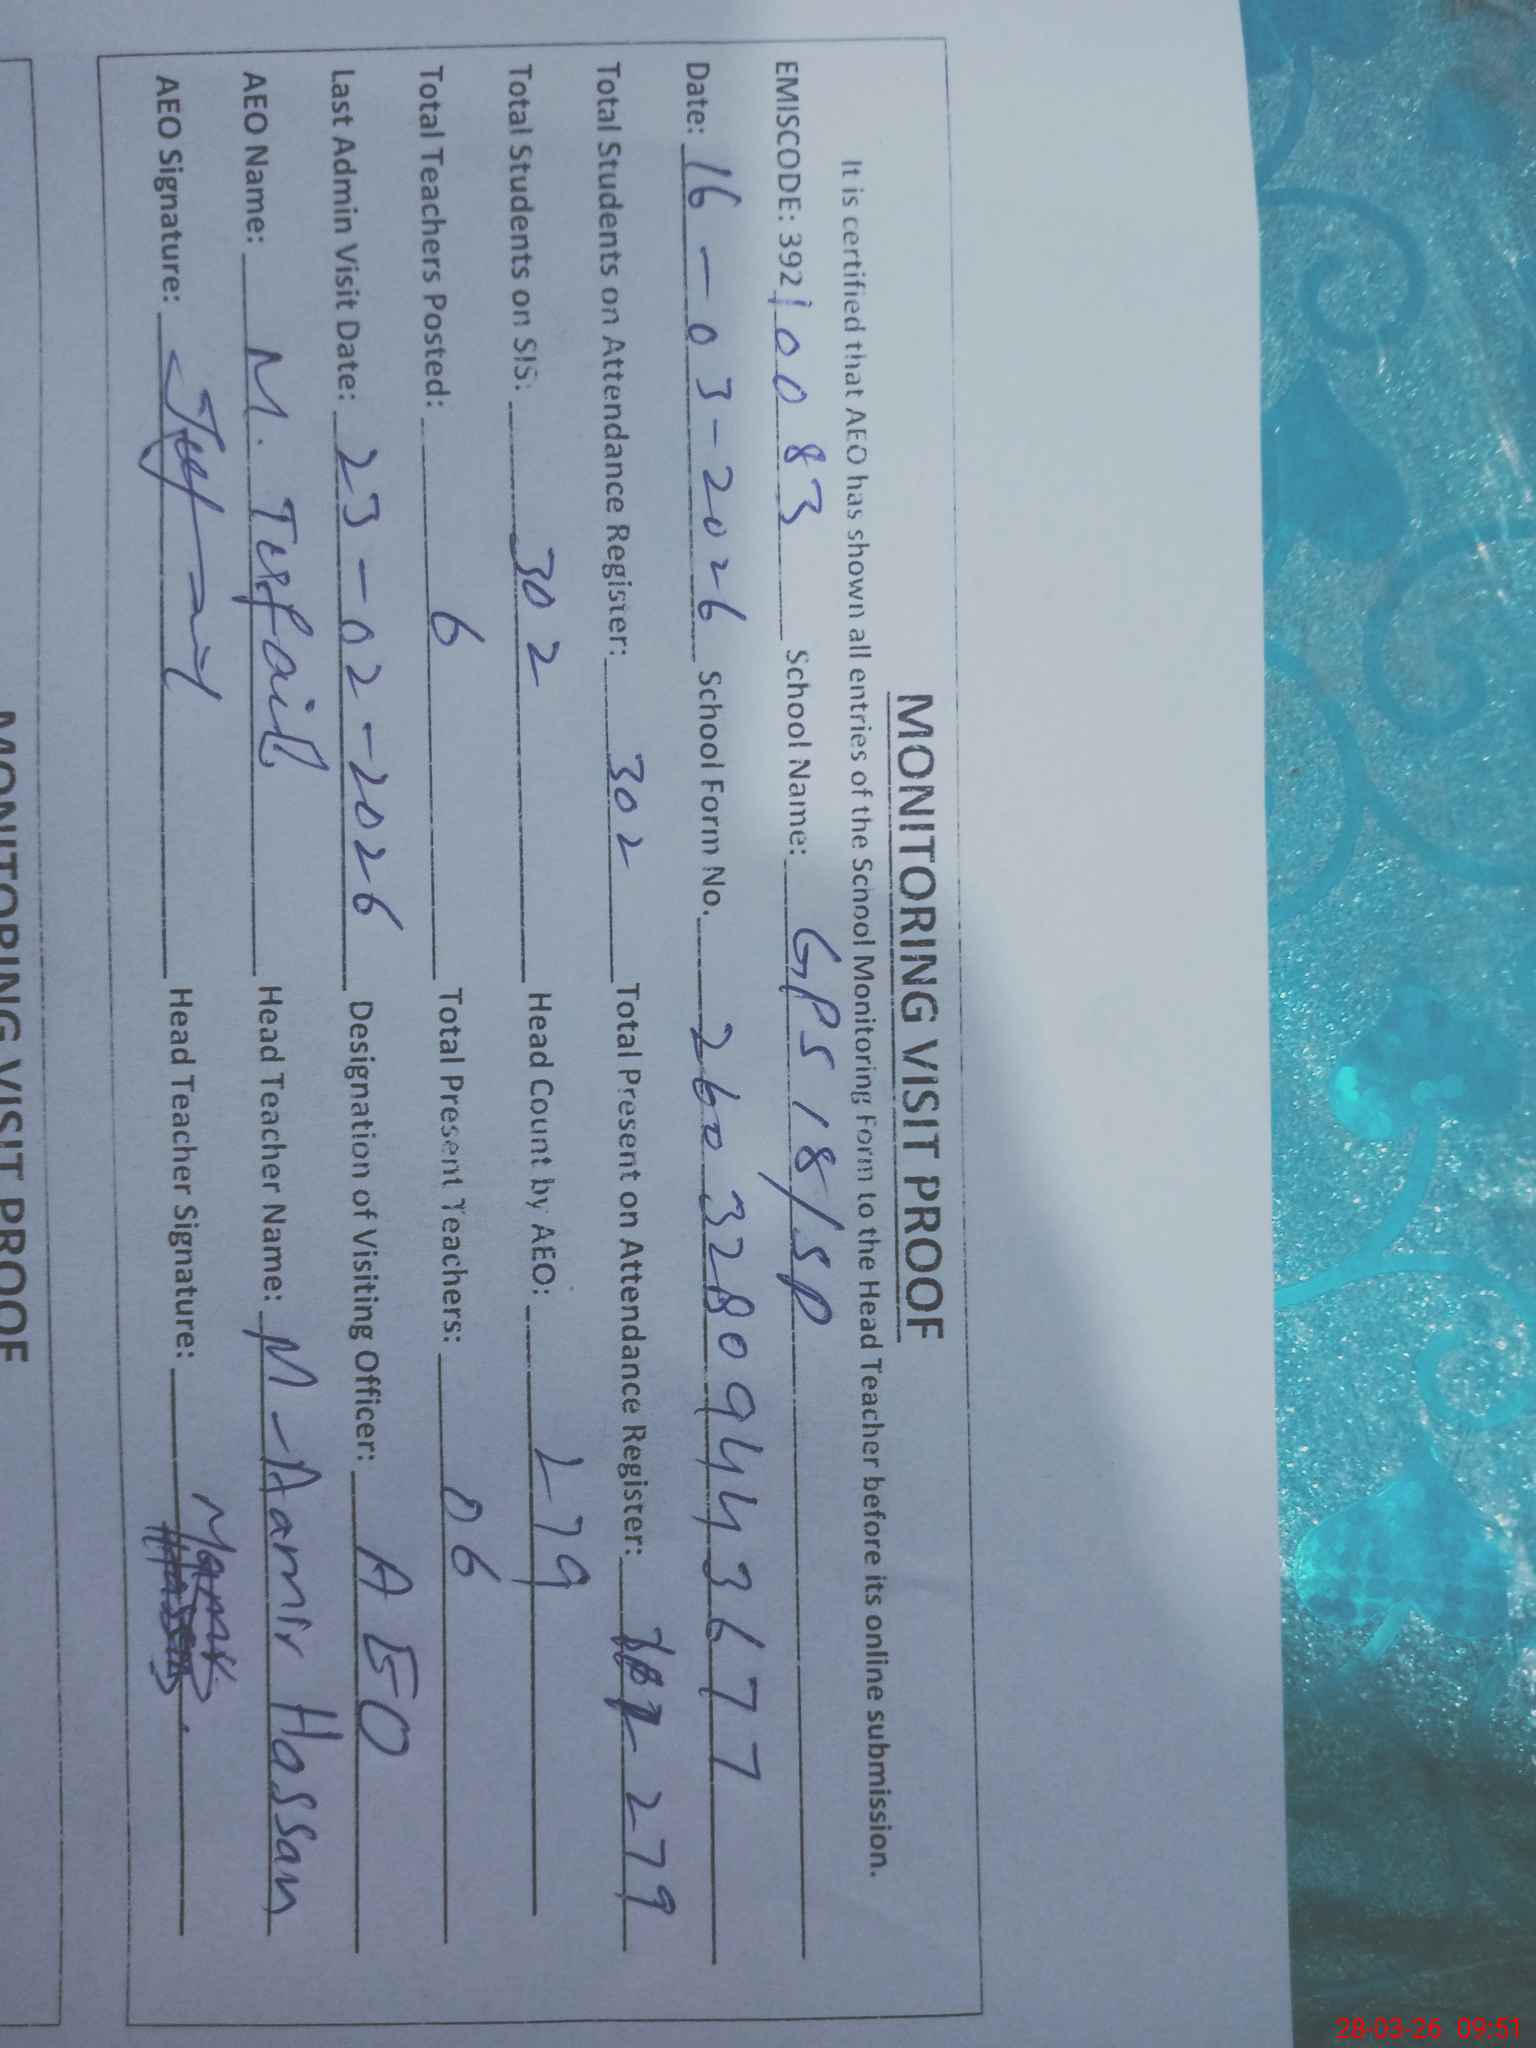 MONITORING VISIT PROOF
It is certified that AEO has shown all entries of the School Monitoring Form to the Head Teacher before its online submission.
EMISCODE: 392 1 0 0 8 3 School Name: GPS 18/SP
Date: 16-03-2026 School Form No. 26032809443677
Total Students on Attendance Register: 302 Total Present on Attendance Register: 279
Total Students on SIS: 302 Head Count by AEO: 279
Total Teachers Posted: 6 Total Present Teachers: 06
Last Admin Visit Date: 23-02-2026 Designation of Visiting Officer: AEO
AEO Name: M. Tufail Head Teacher Name: M-Aamir Hassan
AEO Signature: Head Teacher Signature:
MONITORING VISIT PROOF
28-03-26 09:51